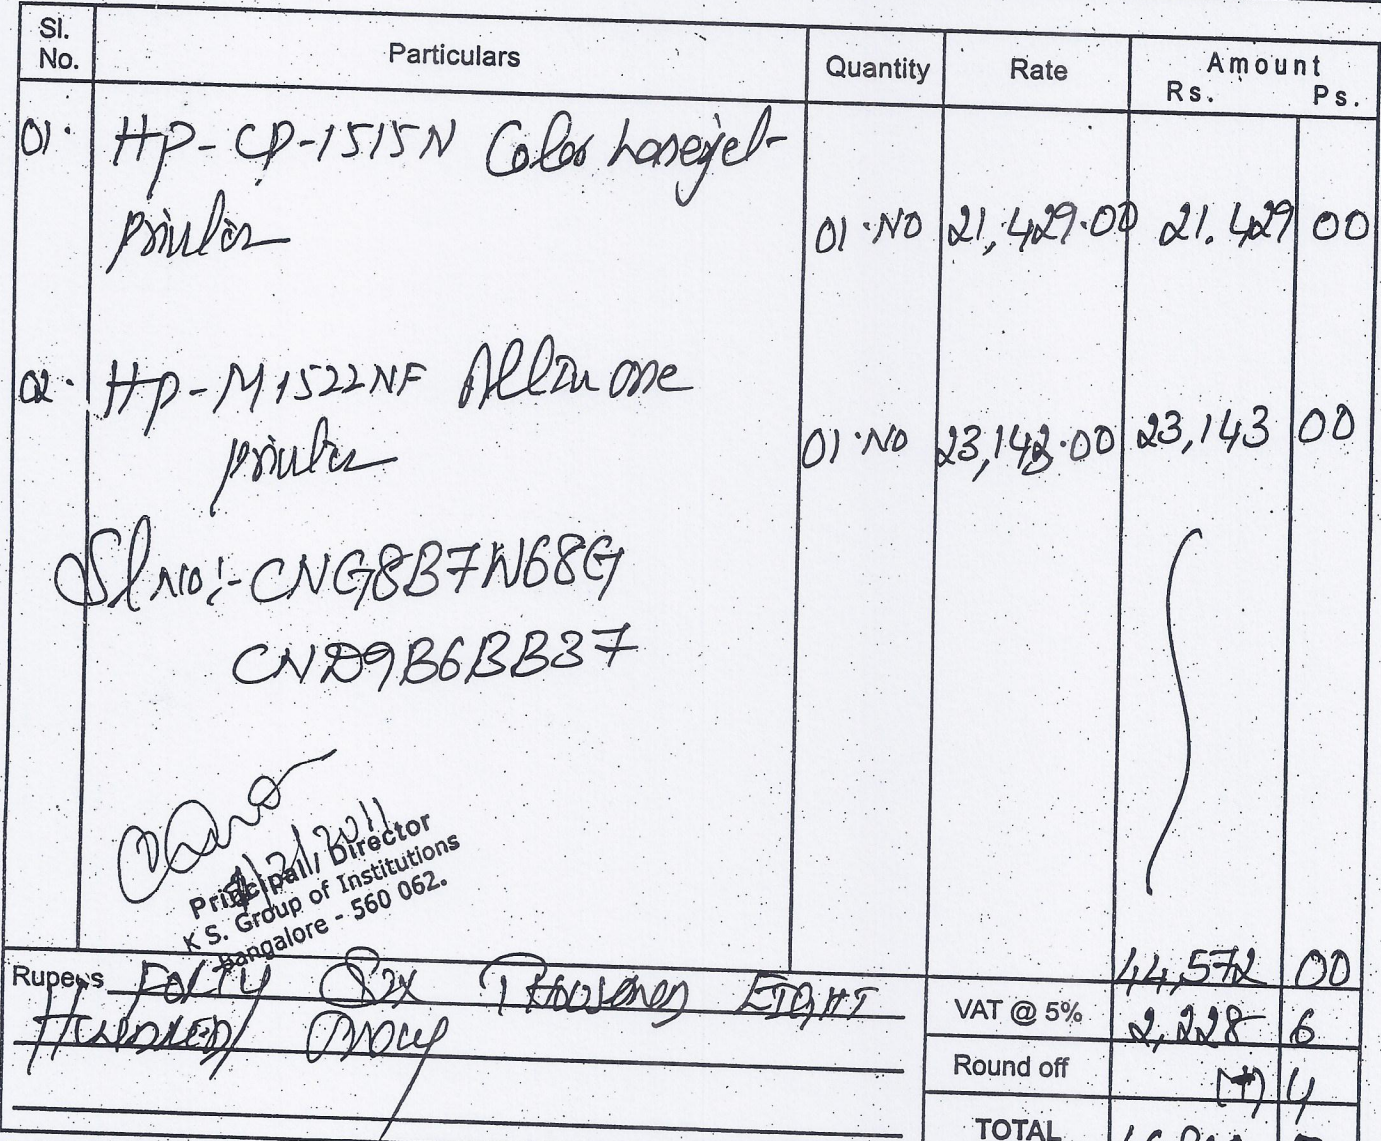 Sl. No. Particulars Quantity Rate Amount Rs. Ps.
01. HP-CP-1515N Color Laserjet
printer 01.NO 21,429.00 21.429 00
02. HP-M1522NF All In one
printer 01.NO 23,143.00 23,143 00
Sl No:- CNG8B7W68G
CND9B6BB37
2011
Principal / Director
K S. Group of Institutions
Bangalore - 560 062.
44,572 00
Rupees Forty Six Thousand EIGHT VAT @ 5% 2,228 6
Hundred only Round off (+) 4
TOTAL